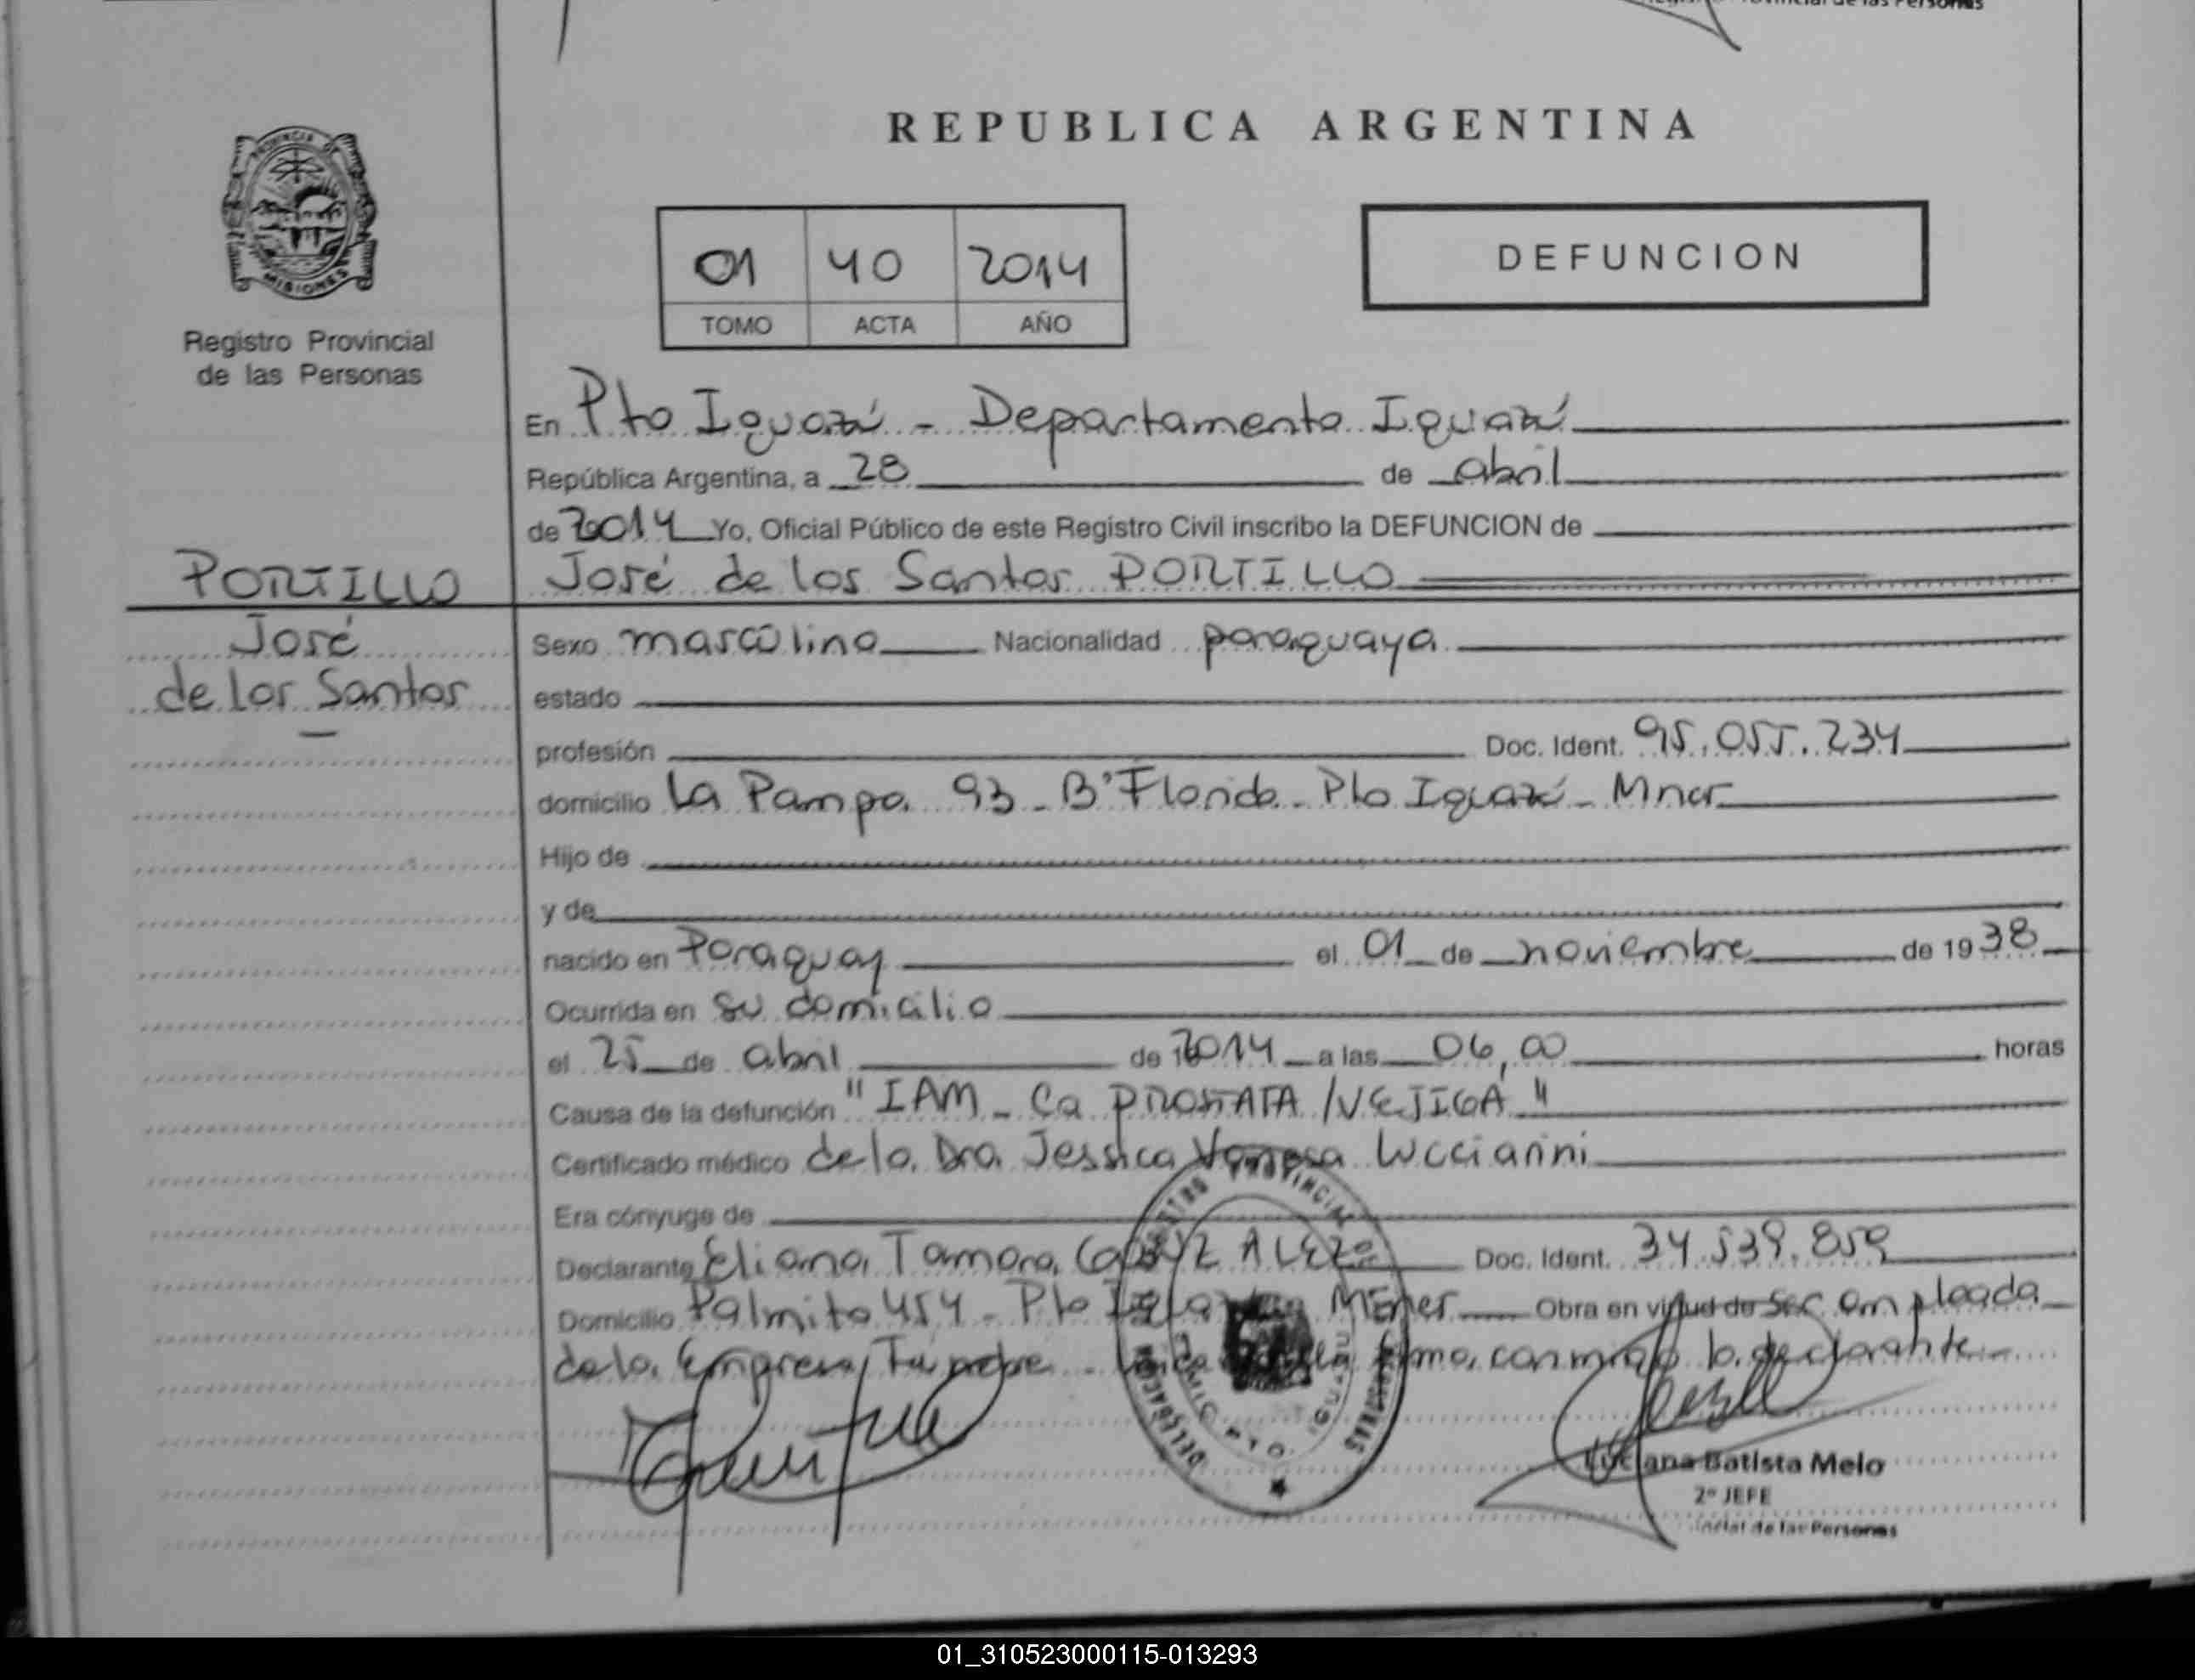 de las Personas
PROVINCIA DE
MISIONES
Registro Provincial
de las Personas
REPUBLICA ARGENTINA
01 40 2014
TOMO ACTA AÑO
DEFUNCION
En Pto Iguazú - Departamento Iguazú
República Argentina, a 28 de abril
de 2014 Yo, Oficial Público de este Registro Civil inscribo la DEFUNCION de
PORTILLO
José de los Santos PORTILLO
José
de los Santos
Sexo masculino Nacionalidad paraguaya
estado
profesión Doc. Ident. 95.055.234
domicilio La Pampa 93 - B° Florida - Pto Iguazú - Mnes
Hijo de
y de
nacido en Paraguay el 01 de noviembre de 1938
Ocurrida en su domicilio
el 25 de abril de 2014 a las 06,00 horas
Causa de la defunción "IAM - Ca PROSTATA/VEJIGA"
Certificado médico de la Dra Jessica Vanesa Luccianni
Era cónyuge de
Declarante Eliana Tamara Doc. Ident. 34.539.859
Domicilio Palmito 454 - Pto Iguazú Obra en virtud de ser empleada
de la Empresa firma conmigo la declarante
REGISTRO PROVINCIAL DE LAS PERSONAS
DELEGACION
PTO.
Luciana Batista Melo
2º JEFE
de las Personas
01_310523000115-013293